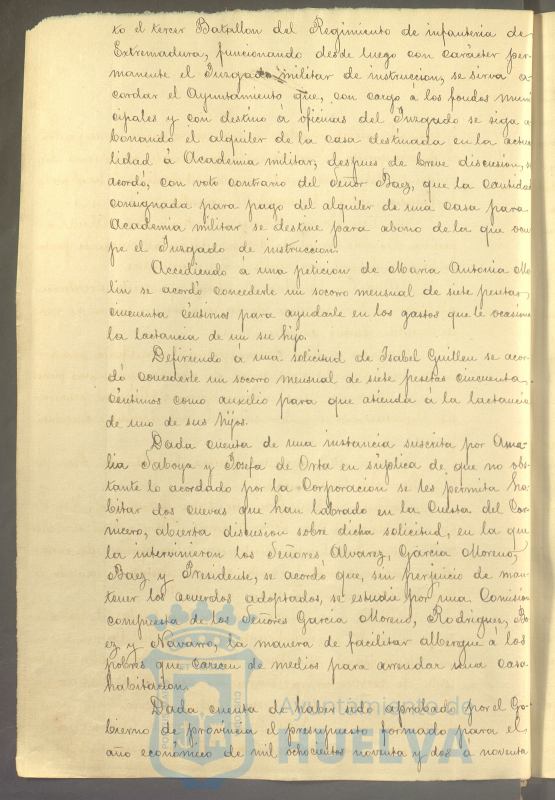 to el tercer Batallon del Regimiento de infanteria de
Extremadura, funcionando desde luego con carácter per-
manente el Juzgado militar de instruccion, se sirva a-
cordar el Ayuntamiento que, con cargo á los fondos muni-
cipales y con destino á oficinas del Juzgado se siga a-
bonando el alquiler de la casa destinada en la actua-
lidad á Academia militar; despues de breve discusion, se
acordó, con voto contrario del Señor Baez, que la cantidad
consignada para pago del alquiler de una casa para
Academia militar se destine para abono de la que ocu-
pe el Juzgado de instruccion.
Accediendo á una peticion de Maria Antonia Mo-
lin se acordó concederle un socorro mensual de siete pesetas,
cincuenta céntimos para ayudarle en los gastos que le ocasiona
la lactancia de un su hijo.
Defiriendo á una solicitud de Isabel Guillen se acor-
dó concederle un socorro mensual de siete pesetas cincuenta,
céntimos como auxilio para que atienda á la lactancia
de uno de sus hijos.
Dada cuenta de una instancia suscrita por Ama-
lia Saboya y Josefa de Orta en súplica de que no obs-
tante lo acordado por la Corporacion se les permita ha-
bitar dos cuevas que han labrado en la Cuesta del Car-
nicero, abierta discusion sobre dicha solicitud, en la que
la intervinieron los Señores Alvarez, Garcia Moreno,
Baez y Presidente, se acordó que, sin perjuicio de man-
tener los acuerdos adoptados, se estudie por una Comision
compuesta de los Señores Garcia Moreno, Rodriguez, Ba-
ez y Navarro, la manera de facilitar albergue á los
pobres que carecen de medios para arrendar una casa
habitacion.
Dada cuenta de haber sido aprobado por el Go-
bierno de provincia el presupuesto formado para el
año económico de mil ochocientos noventa y dos á noventa
Ayuntamiento de
HUELVA